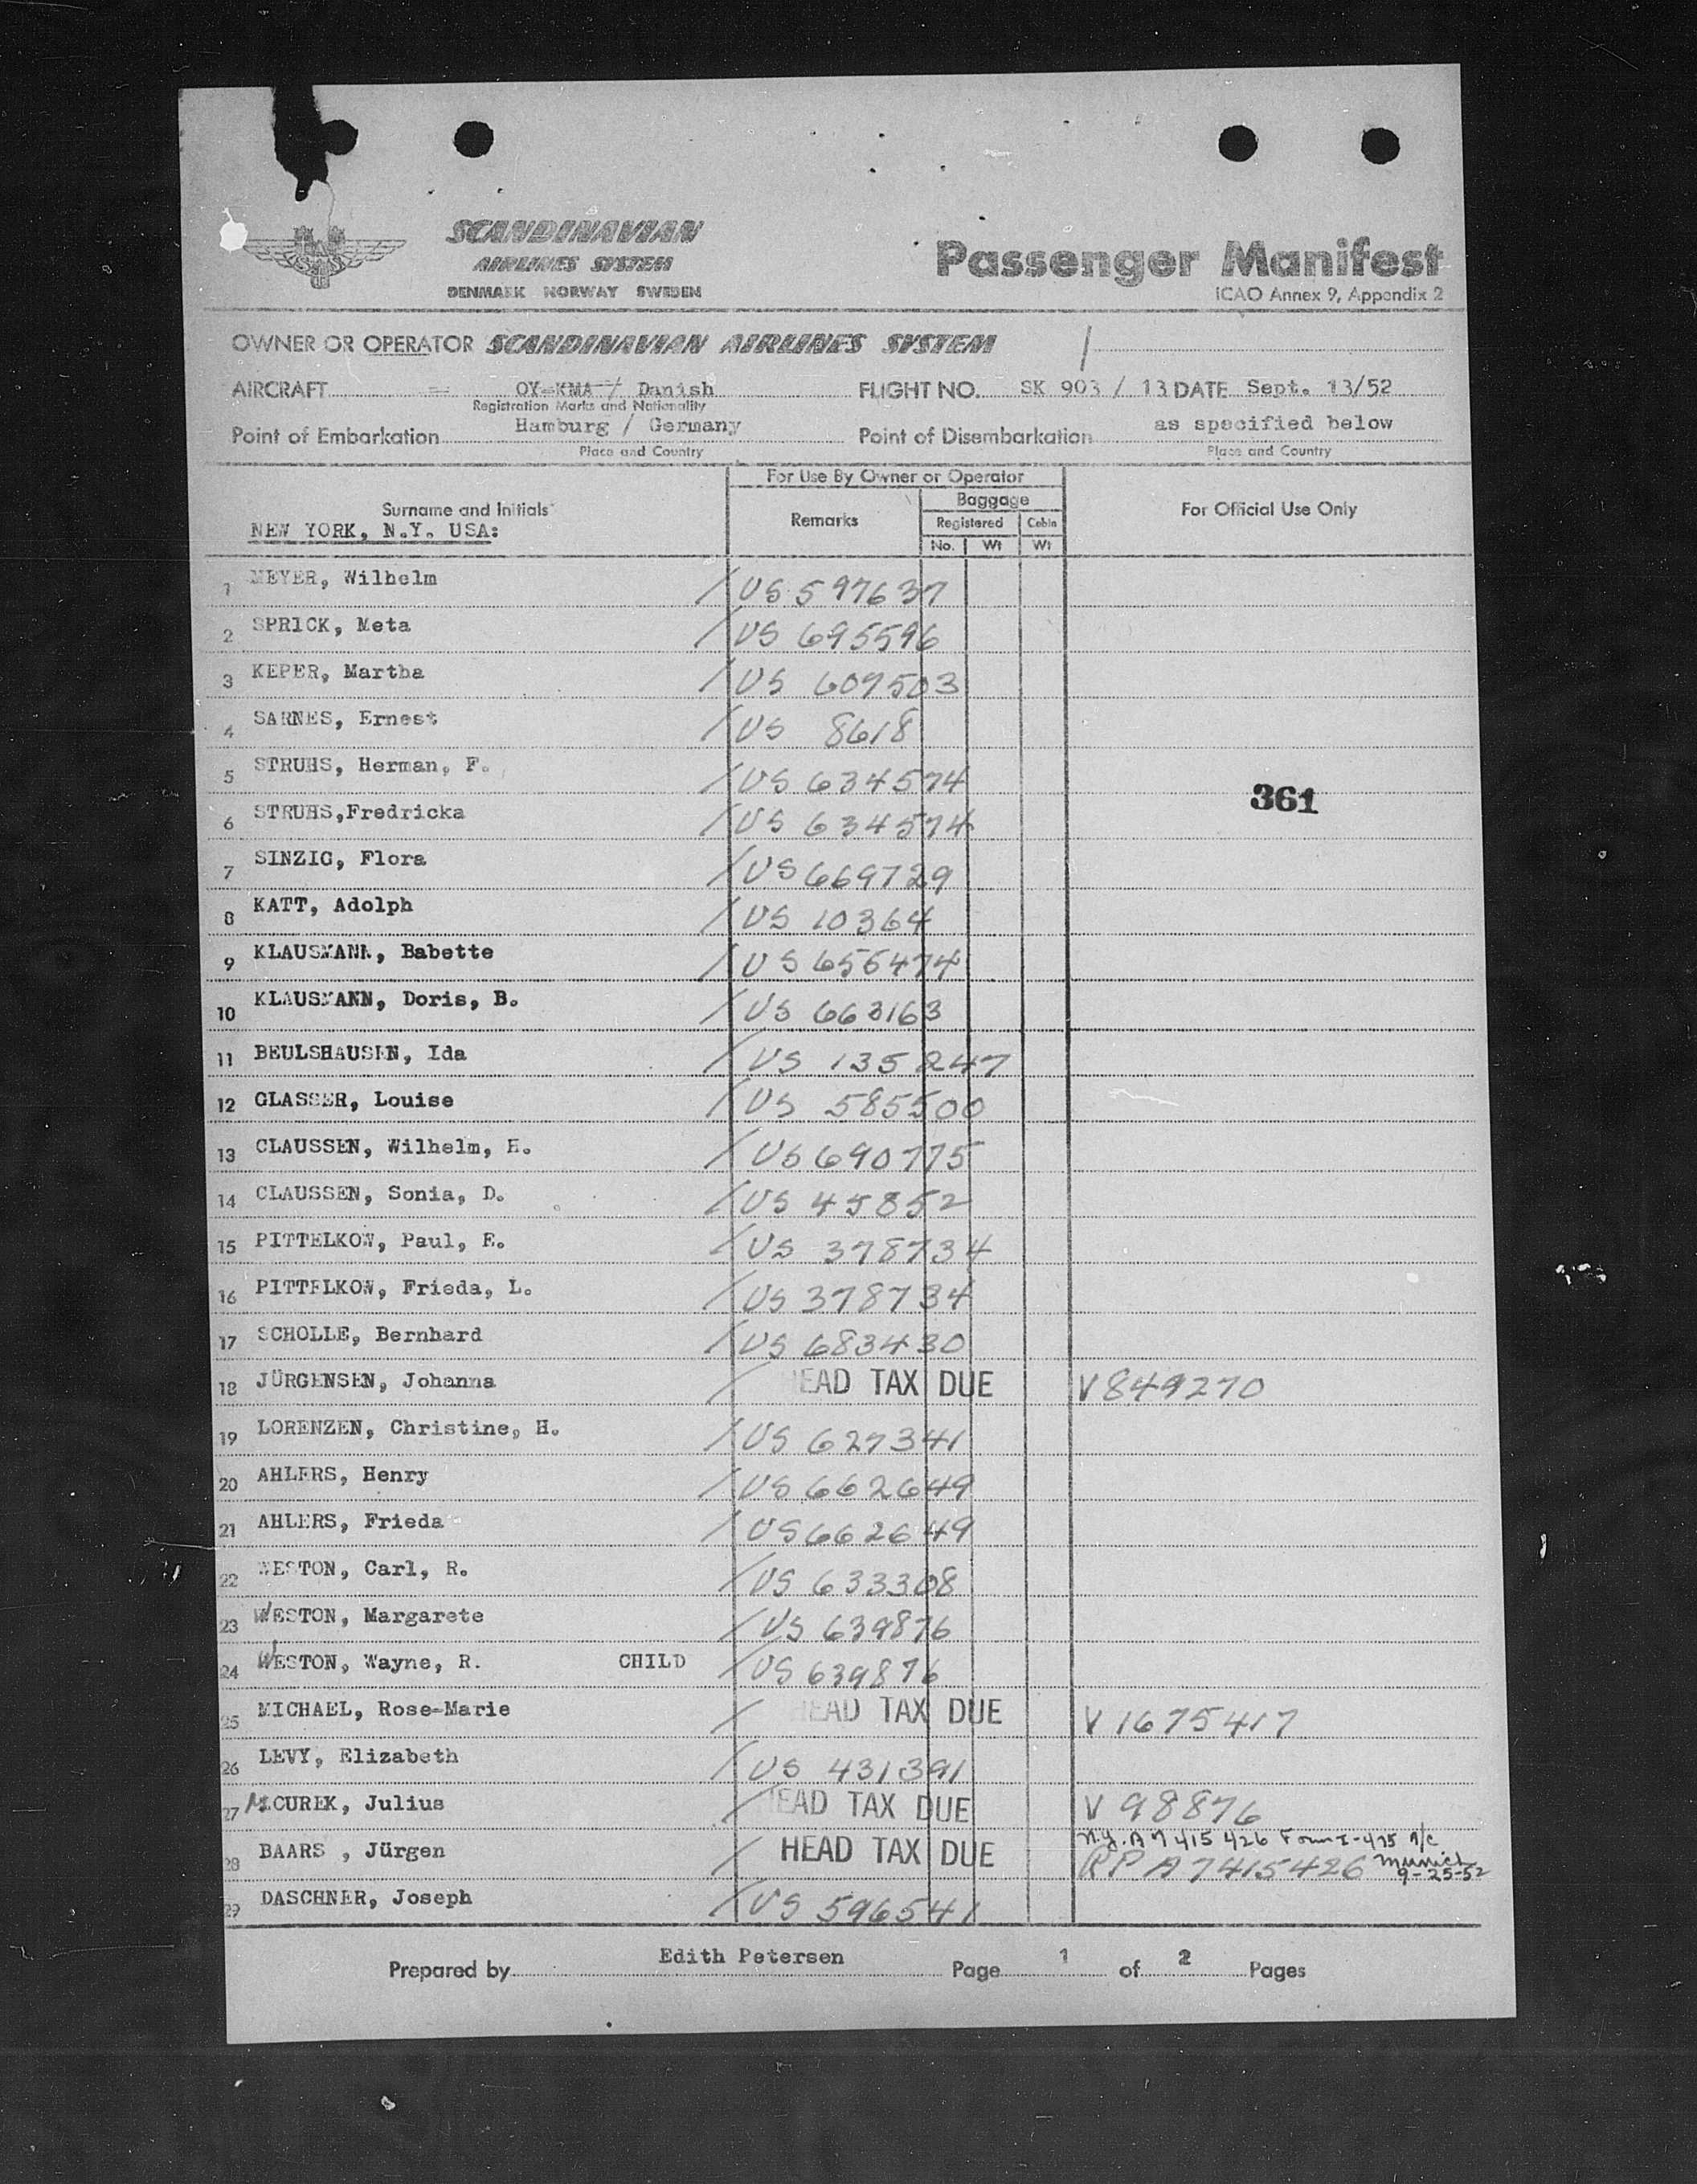 SCANDINAVIAN
AIRLINES SYSTEM
DENMARK NORWAY SWEDEN
Passenger Manifest
ICAO Annex 9, Appendix 2
OWNER OR OPERATOR SCANDINAVIAN AIRLINES SYSTEM /
AIRCRAFT OY-KMA / Danish FLIGHT NO. SK 903 / 13 DATE Sept. 13/52
Registration Marks and Nationality
Point of Embarkation Hamburg / Germany Point of Disembarkation as specified below
Place and Country Place and Country
For Use By Owner or Operator
Surname and Initials Remarks Baggage For Official Use Only
Registered Cabin
NEW YORK, N.Y. USA:
No. Wt Wt
1 MEYER, Wilhelm / US 597637
2 SPRICK, Meta / US 695596
3 KEPER, Martha / US 609503
4 SARNES, Ernest / US 8618
5 STRUHS, Herman, F. / US 634574
361
6 STRUHS,Fredricka / US 634574
7 SINZIG, Flora / US 669729
8 KATT, Adolph / US 10364
9 KLAUSMANN, Babette / US 656474
10 KLAUSMANN, Doris, B. / US 663163
11 BEULSHAUSEN, Ida / US 135247
12 GLASSER, Louise / US 585500
13 CLAUSSEN, Wilhelm, H. / US 690775
14 CLAUSSEN, Sonia, D. / US 45852
15 PITTELKOW, Paul, E. / US 378734
16 PITTELKOW, Frieda, L. / US 378734
17 SCHOLLE, Bernhard / US 683430
18 JÜRGENSEN, Johanna / HEAD TAX DUE V 849270
19 LORENZEN, Christine, H. / US 627341
20 AHLERS, Henry / US 662649
21 AHLERS, Frieda / US 662649
22 WESTON, Carl, R. / US 633308
23 WESTON, Margarete / US 639876
24 WESTON, Wayne, R. CHILD / US 639876
25 MICHAEL, Rose-Marie / HEAD TAX DUE V 1675417
26 LEVY, Elizabeth / US 431391
27 MCUREK, Julius / HEAD TAX DUE V 98876
N.Y. A 7 415 426 Form I-475 N/C
28 BAARS , Jürgen / HEAD TAX DUE RP A7415426 Munich
9-25-52
29 DASCHNER, Joseph / US 596541
Prepared by Edith Petersen Page 1 of 2 Pages